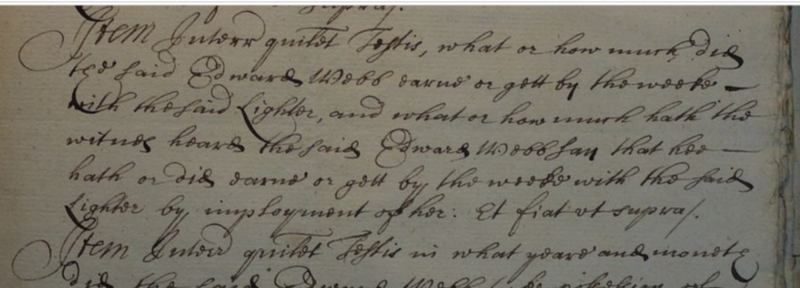 supra/.
Item Interr quilet Testis, what or how much did
the said Edward Webb earne or gett by the weeke
with the said Lighter, and what or how much hath the
witnes heard the said Edward Webb say that hee
hath or did earne or gett by the weeke with the said
Lighter by imployment of her: Et fiat ut supra/.
Item Interr quilet Testis in what yeare and moneth
did the said Edward Webb